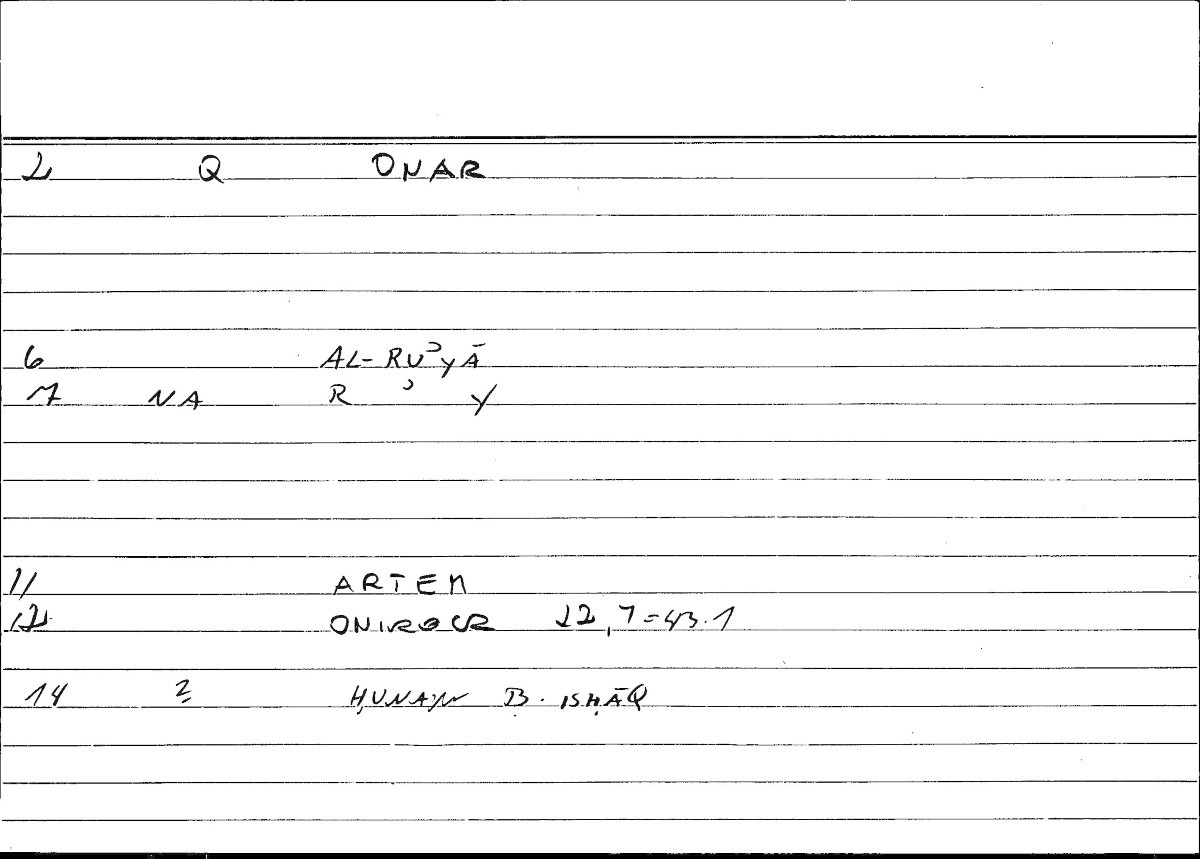 2 Q ONAR
6 AL-RUʾYĀ
7 NA R ʾ Y
11 ARTEM
12 ONIROCR 22,7=43.1
14 2 ḤUNAYN B. ISḤĀQ